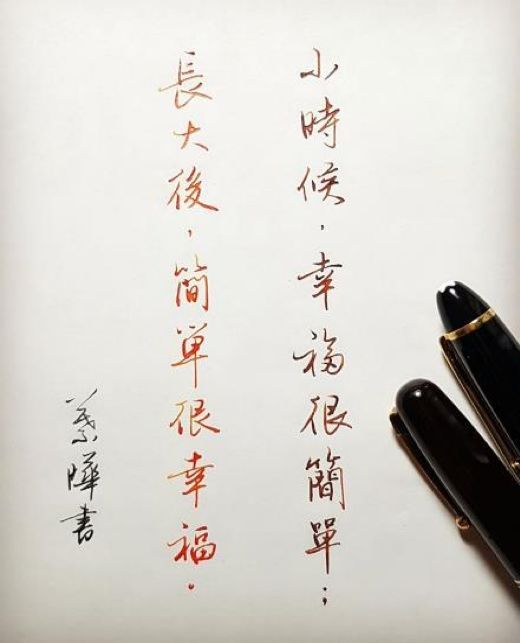 小時候，幸福很簡單；
長大後，簡單很幸福。
葉曄書